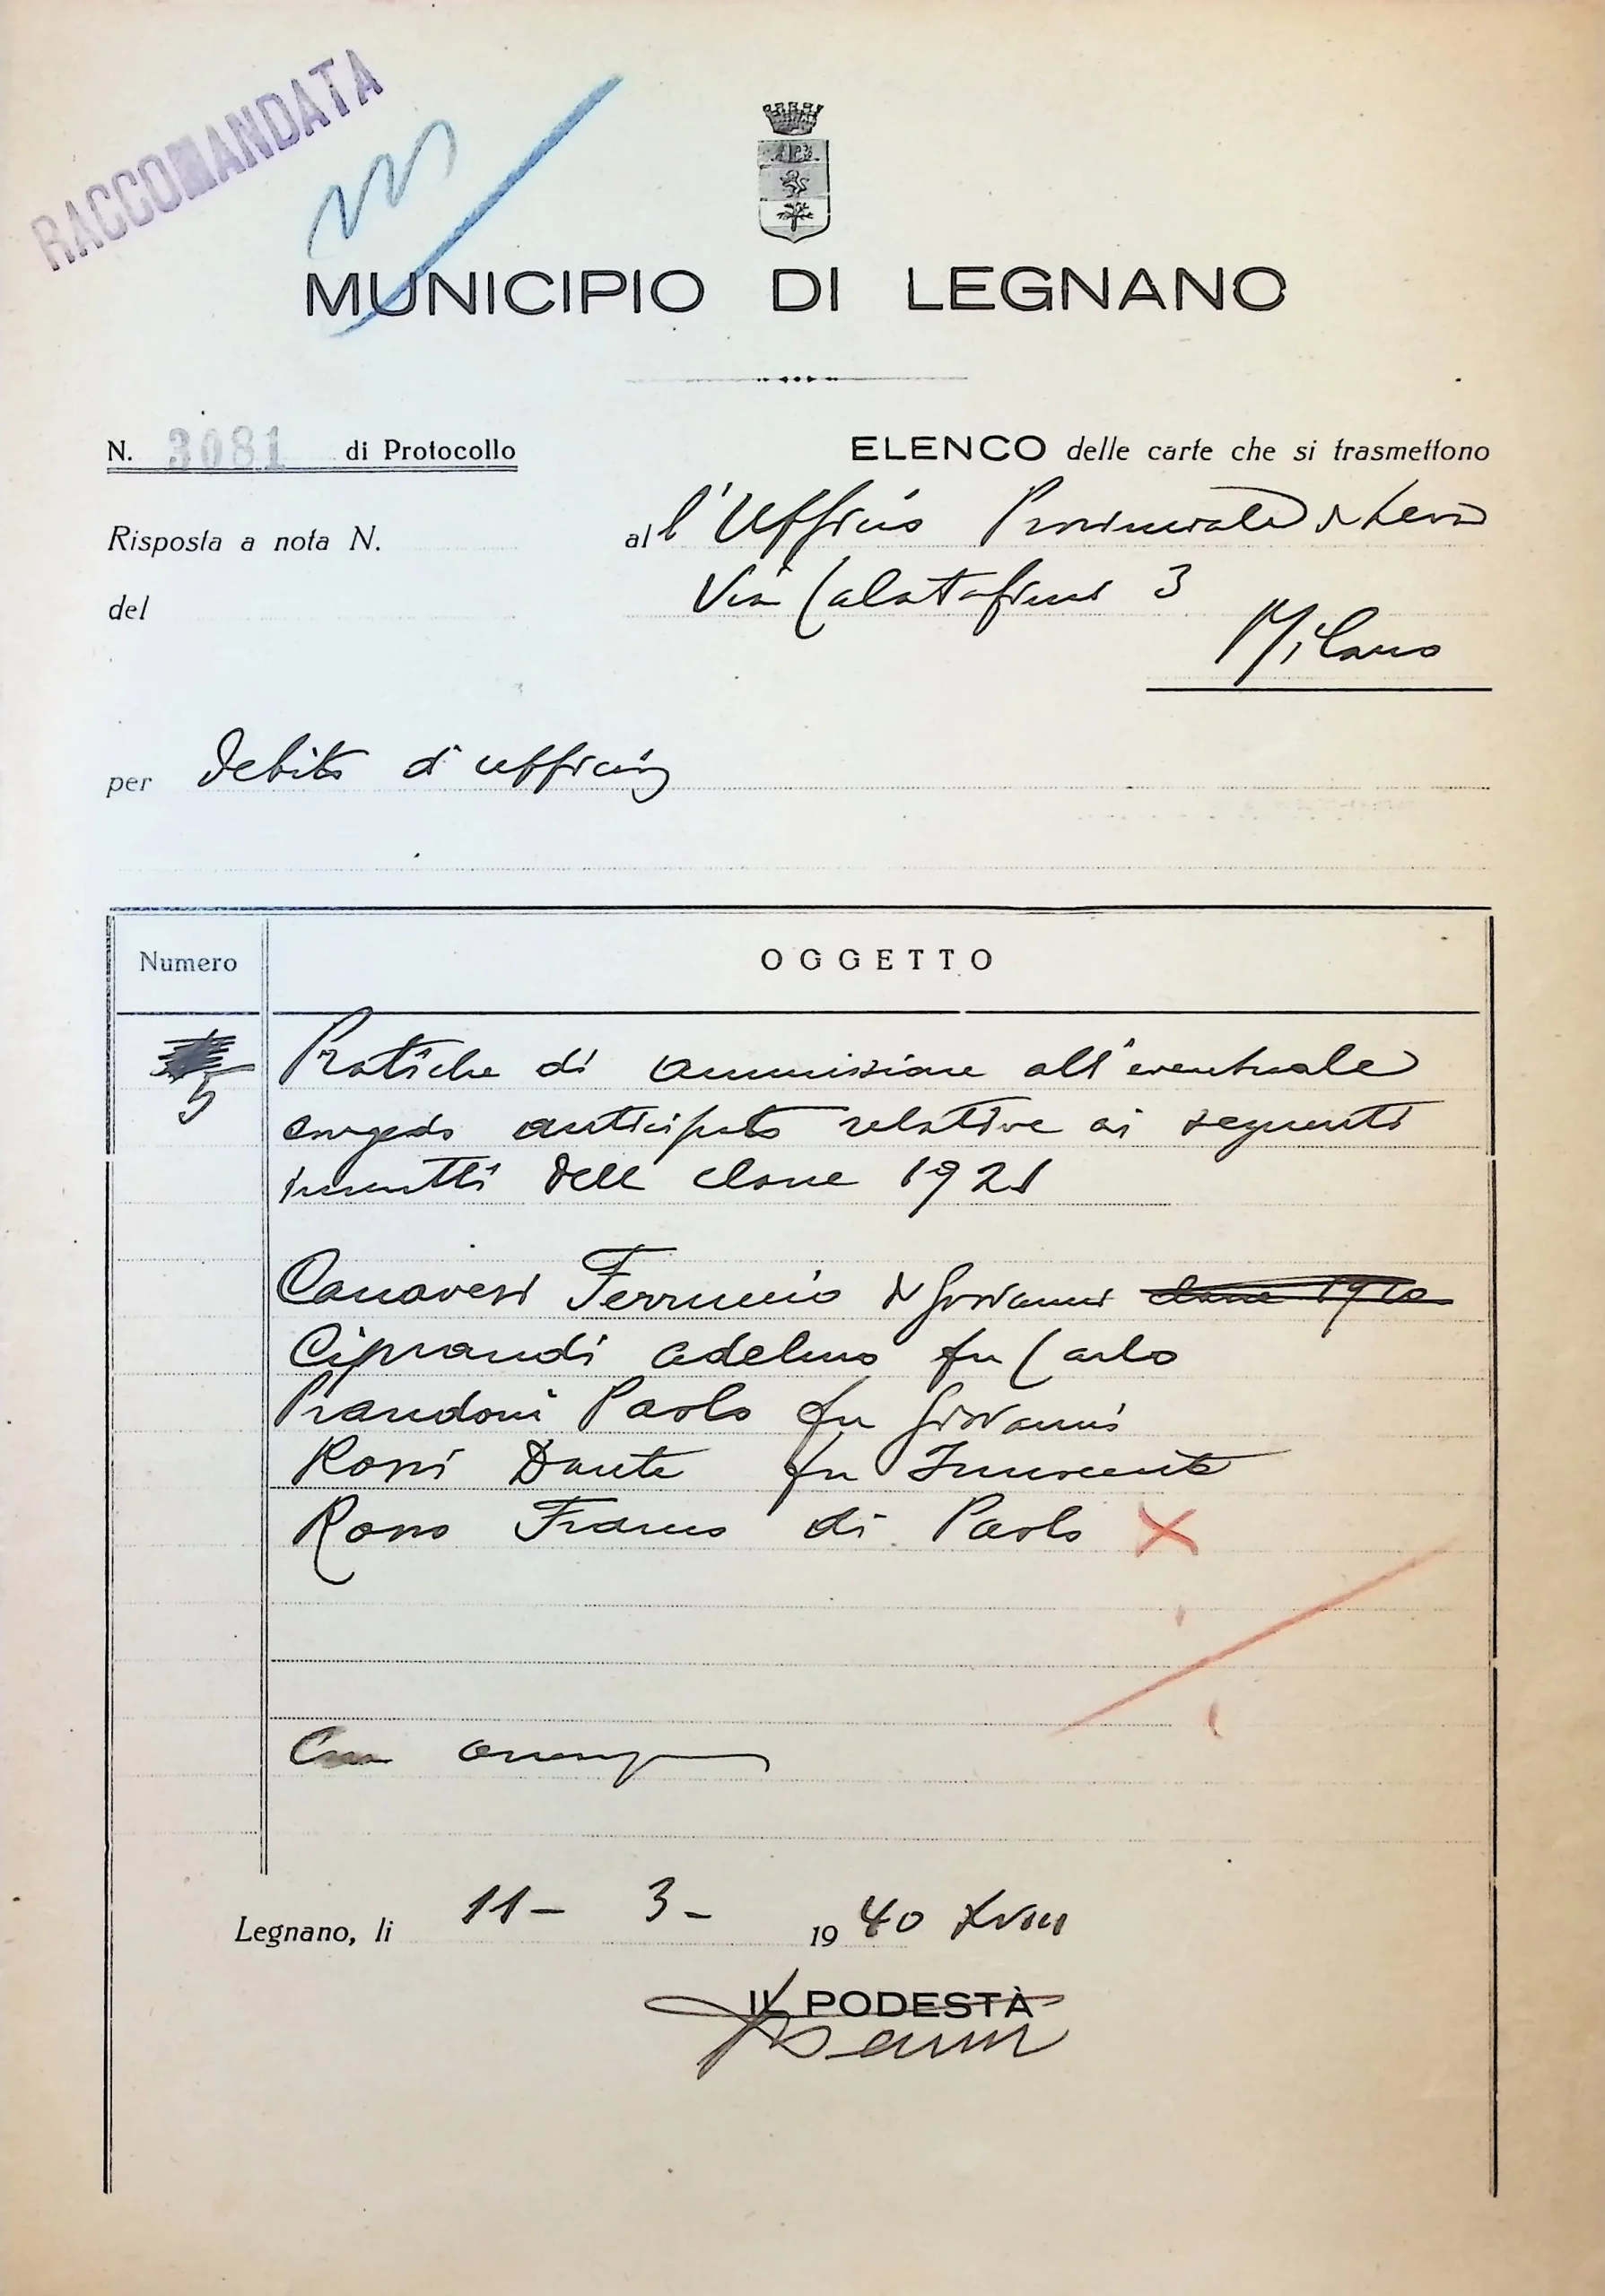 RACCOMANDATA
MUNICIPIO DI LEGNANO
N. 3081 di Protocollo
ELENCO delle carte che si trasmettono
Risposta a nota N.
al l'Ufficio Provinciale di Leva
del
Via Calatafimi 3
Milano
per debito di ufficio
Numero
OGGETTO
5
Pratiche di ammissione all'eventuale
congedo anticipato relative ai seguenti
inscritti della classe 1921
Canavesi Ferruccio di Giovanni classe 1920
Ciprandi Adelmo fu Carlo
Prandoni Paolo fu Giovanni
Rossi Dante fu Innocente
Rosso Franco di Paolo
Con
Legnano, li 11 - 3 - 1940 XVIII
IL PODESTÀ